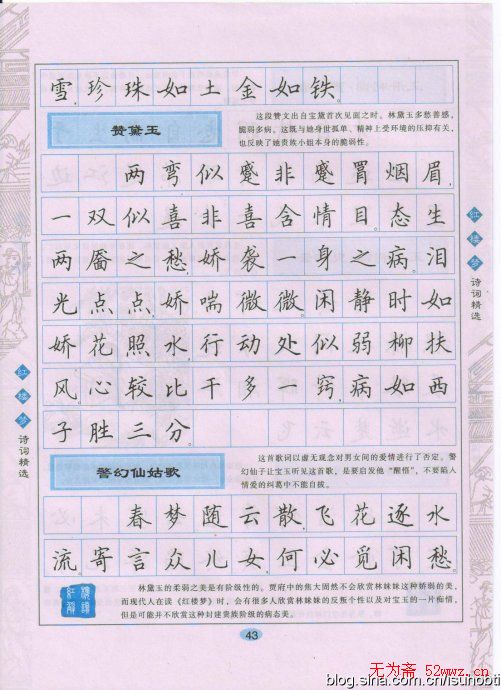 雪,珍珠如土金如铁。
赞黛玉
这段赞文出自宝黛首次见面之时。林黛玉多愁善感,
脆弱多病。这既与她身世孤单、精神上受环境的压抑有关,
也反映了她贵族小姐本身的脆弱性。
两弯似蹙非蹙罥烟眉,
一双似喜非喜含情目。态生
两靥之愁,娇袭一身之病。泪
光点点,娇喘微微。闲静时如
娇花照水,行动处似弱柳扶
风。心较比干多一窍,病如西
子胜三分。
警幻仙姑歌
这首歌词以虚无观念对男女间的爱情进行了否定。警
幻仙子让宝玉听见这首歌,是要启发他“醒悟”,不要陷入
情爱的纠葛中不能自拔。
春梦随云散,飞花逐水
流;寄言众儿女,何必觅闲愁。
林黛玉的柔弱之美是有阶级性的。贾府中的焦大固然不会欣赏林妹妹这种娇弱的美,
而现代人在读《红楼梦》时,会有很多人欣赏林妹妹的反叛个性以及对宝玉的一片痴情,
但是可能并不欣赏这种封建贵族阶级的病态美。
43
红楼梦
诗词精选
红楼梦
诗词精选
无为斋 52wwz.cn
blog.sina.com.cn/lsunobtl